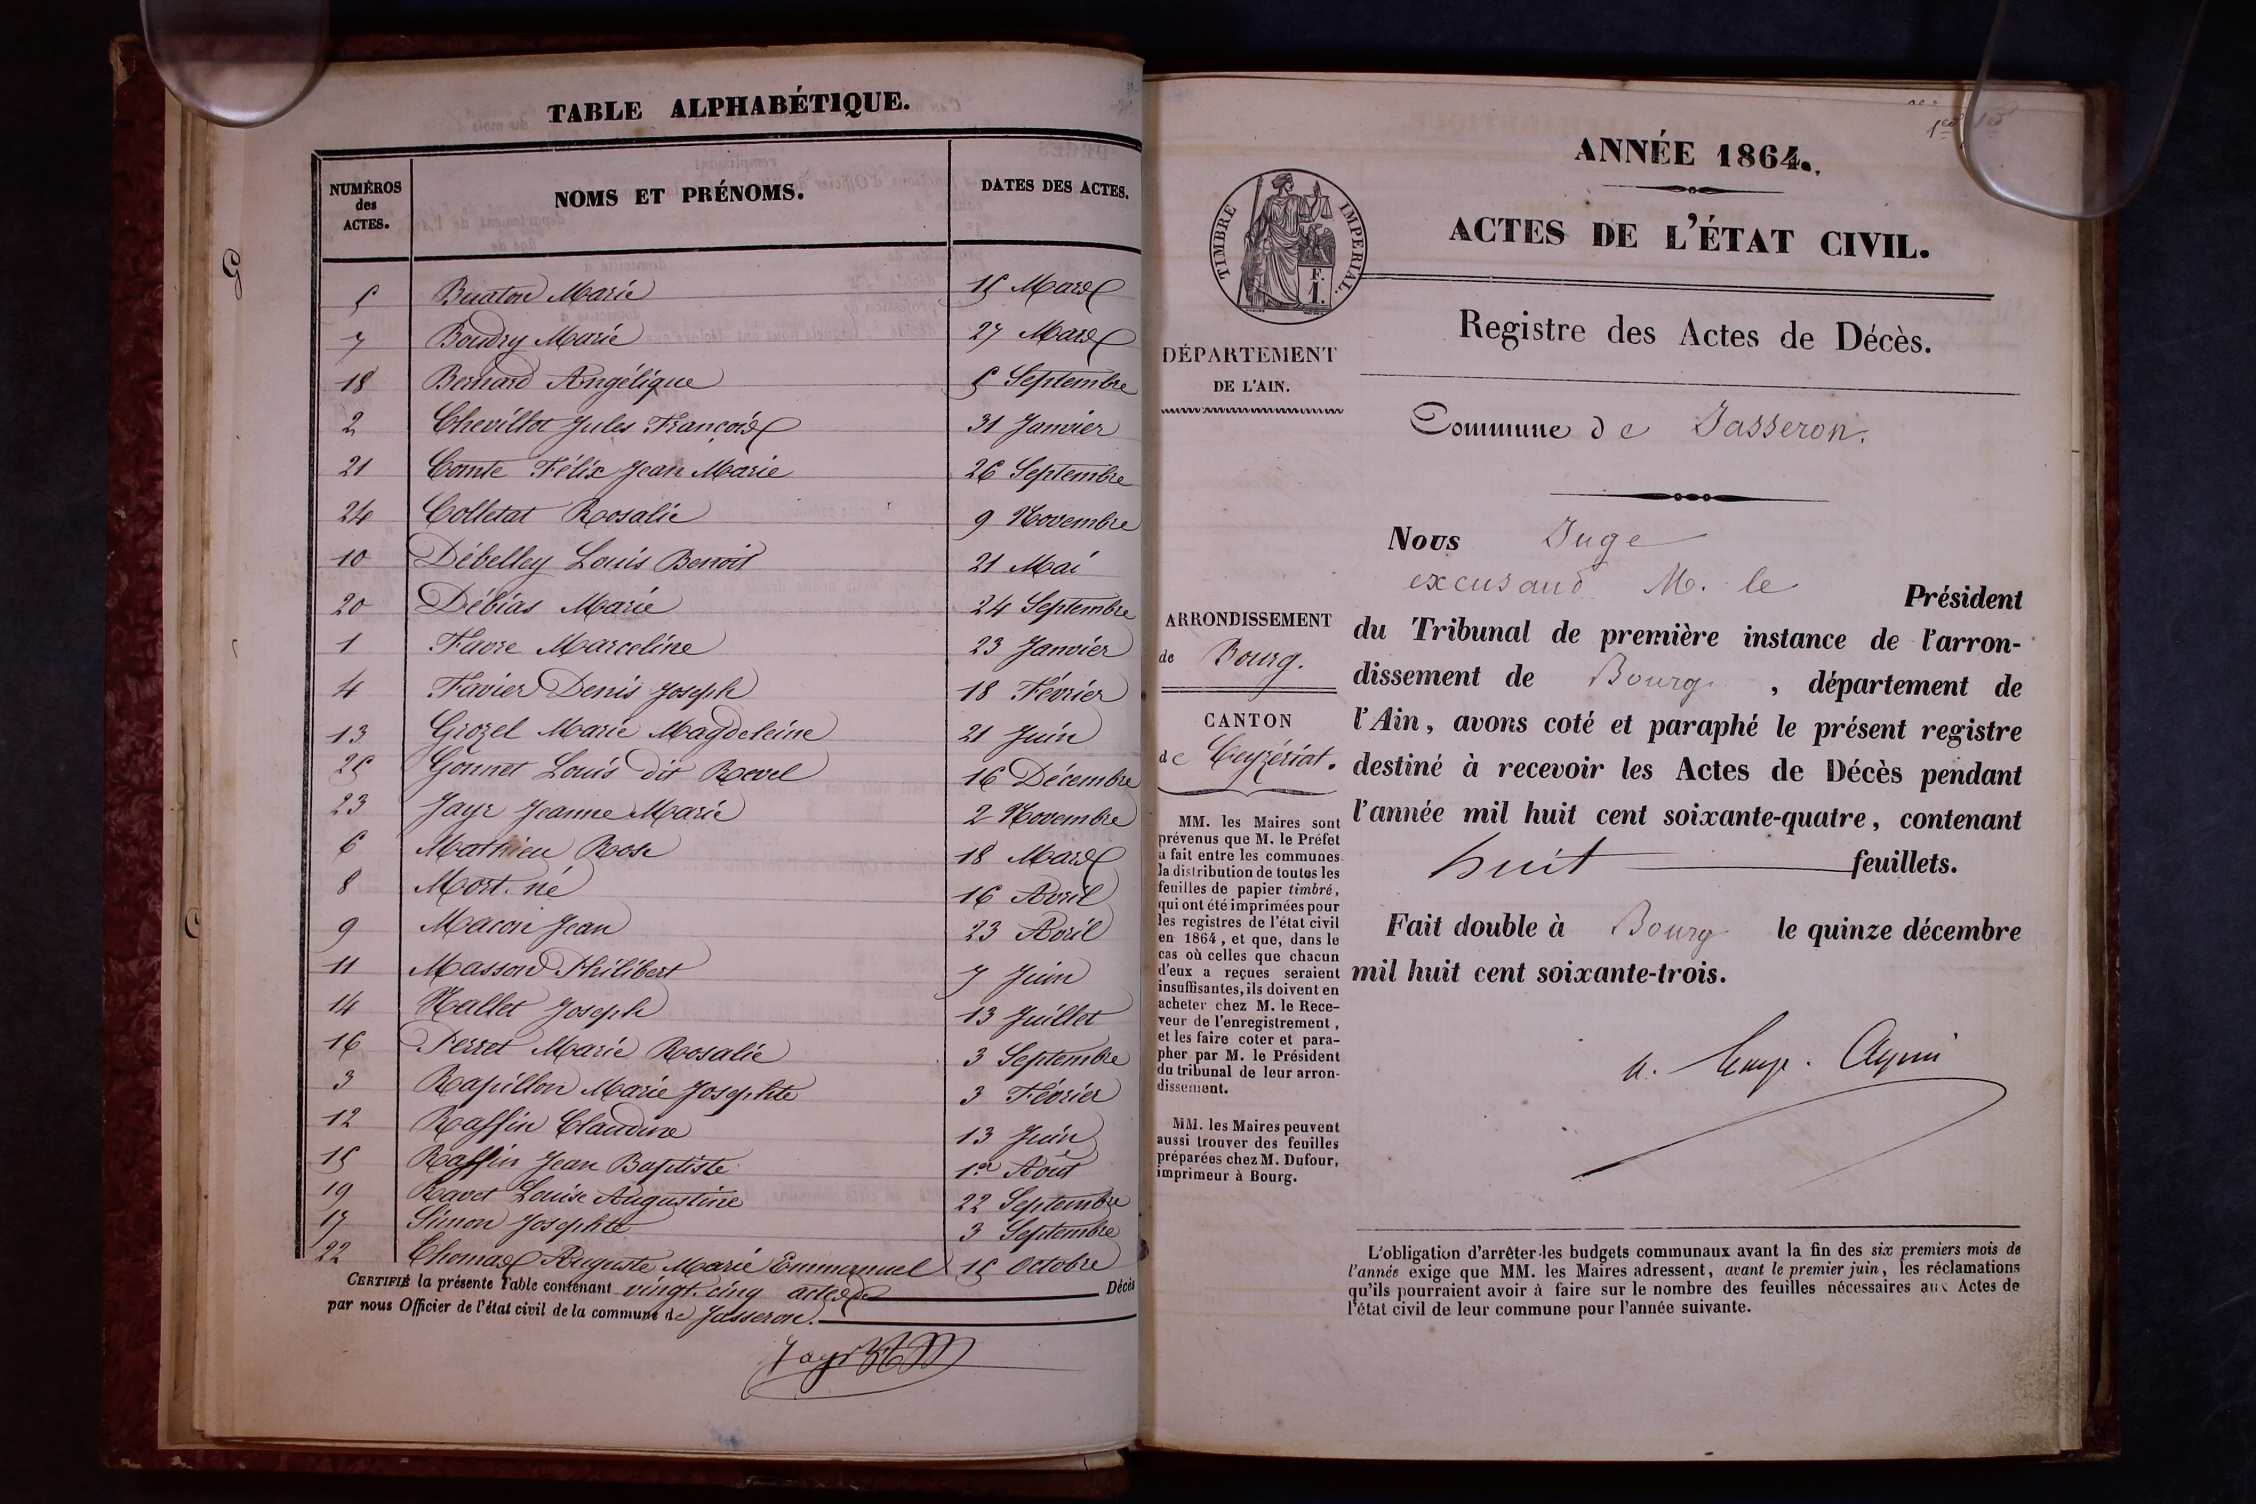 TABLE ALPHABÉTIQUE.
NUMÉROS des ACTES. NOMS ET PRÉNOMS. DATES DES ACTES.
5 Buaton Marie 15 Mars
7 Boudry Marie 27 Mars
18 Bernard Angélique 5 Septembre
2 Chevillot Jules François 31 Janvier
21 Comte Félix Jean Marie 26 Septembre
24 Colletat Rosalie 9 Novembre
10 Débelley Louis Benoit 21 Mai
20 Débias Marie 24 Septembre
1 Favre Marceline 23 Janvier
4 Favier Denis Joseph 18 Février
13 Grozel Marie Magdeleine 21 Juin
25 Gonnet Louis dit Revel 16 Décembre
23 Jayr Jeanne Marie 2 Novembre
6 Mathieu Rose 18 Mars
8 Mort-né 16 Avril
9 Macon Jean 23 Avril
11 Masson Philibert 7 Juin
14 Nallet Joseph 13 Juillet
16 Perret Marie Rosalie 3 Septembre
3 Rapillon Marie Josephte 3 Février
12 Raffin Claudine 13 Juin
15 Raffin Jean Baptiste 1er Août
19 Ravet Louise Augustine 22 Septembre
17 Simon Josephte 3 Septembre
22 Thomas Auguste Marie Emmanuel 15 Octobre
CERTIFIÉ la présente Table contenant vingt-cinq actes de Décès
par nous Officier de l'état civil de la commune de Jasseron.
Jayr
ANNÉE 1864.
ACTES DE L'ÉTAT CIVIL.
TIMBRE IMPERIAL.
F.
1.
Registre des Actes de Décès.
DÉPARTEMENT
DE L'AIN.
Commune de Jasseron.
ARRONDISSEMENT
de Bourg.
CANTON
de Ceyzériat.
MM. les Maires sont
prévenus que M. le Préfet
a fait entre les communes
la distribution de toutes les
feuilles de papier timbré,
qui ont été imprimées pour
les registres de l'état civil
en 1864, et que, dans le
cas où celles que chacun
d'eux a reçues seraient
insuffisantes, ils doivent en
acheter chez M. le Rece-
veur de l'enregistrement,
et les faire coter et para-
pher par M. le Président
du tribunal de leur arron-
dissement.
MM. les Maires peuvent
aussi trouver des feuilles
préparées chez M. Dufour,
imprimeur à Bourg.
Nous Juge
excusand M. le Président
du Tribunal de première instance de l'arron-
dissement de Bourg, département de
l'Ain, avons coté et paraphé le présent registre
destiné à recevoir les Actes de Décès pendant
l'année mil huit cent soixante-quatre, contenant
huit feuillets.
Fait double à Bourg le quinze décembre
mil huit cent soixante-trois.
L'obligation d'arrêter les budgets communaux avant la fin des six premiers mois de
l'année exige que MM. les Maires adressent, avant le premier juin, les réclamations
qu'ils pourraient avoir à faire sur le nombre des feuilles nécessaires aux Actes de
l'état civil de leur commune pour l'année suivante.